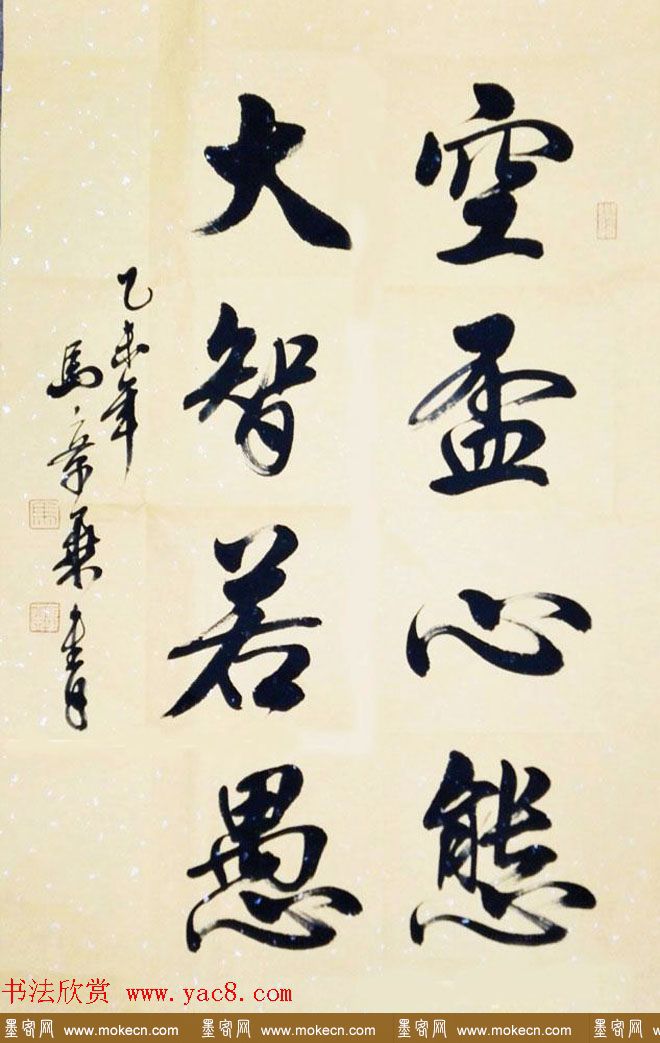 空盃心態
大智若愚
乙未年
馬
書
书法欣赏 www.yac8.com
墨客网 www.mokecn.com 墨客网 www.mokecn.com 墨客网 www.mokecn.com 墨客网 www